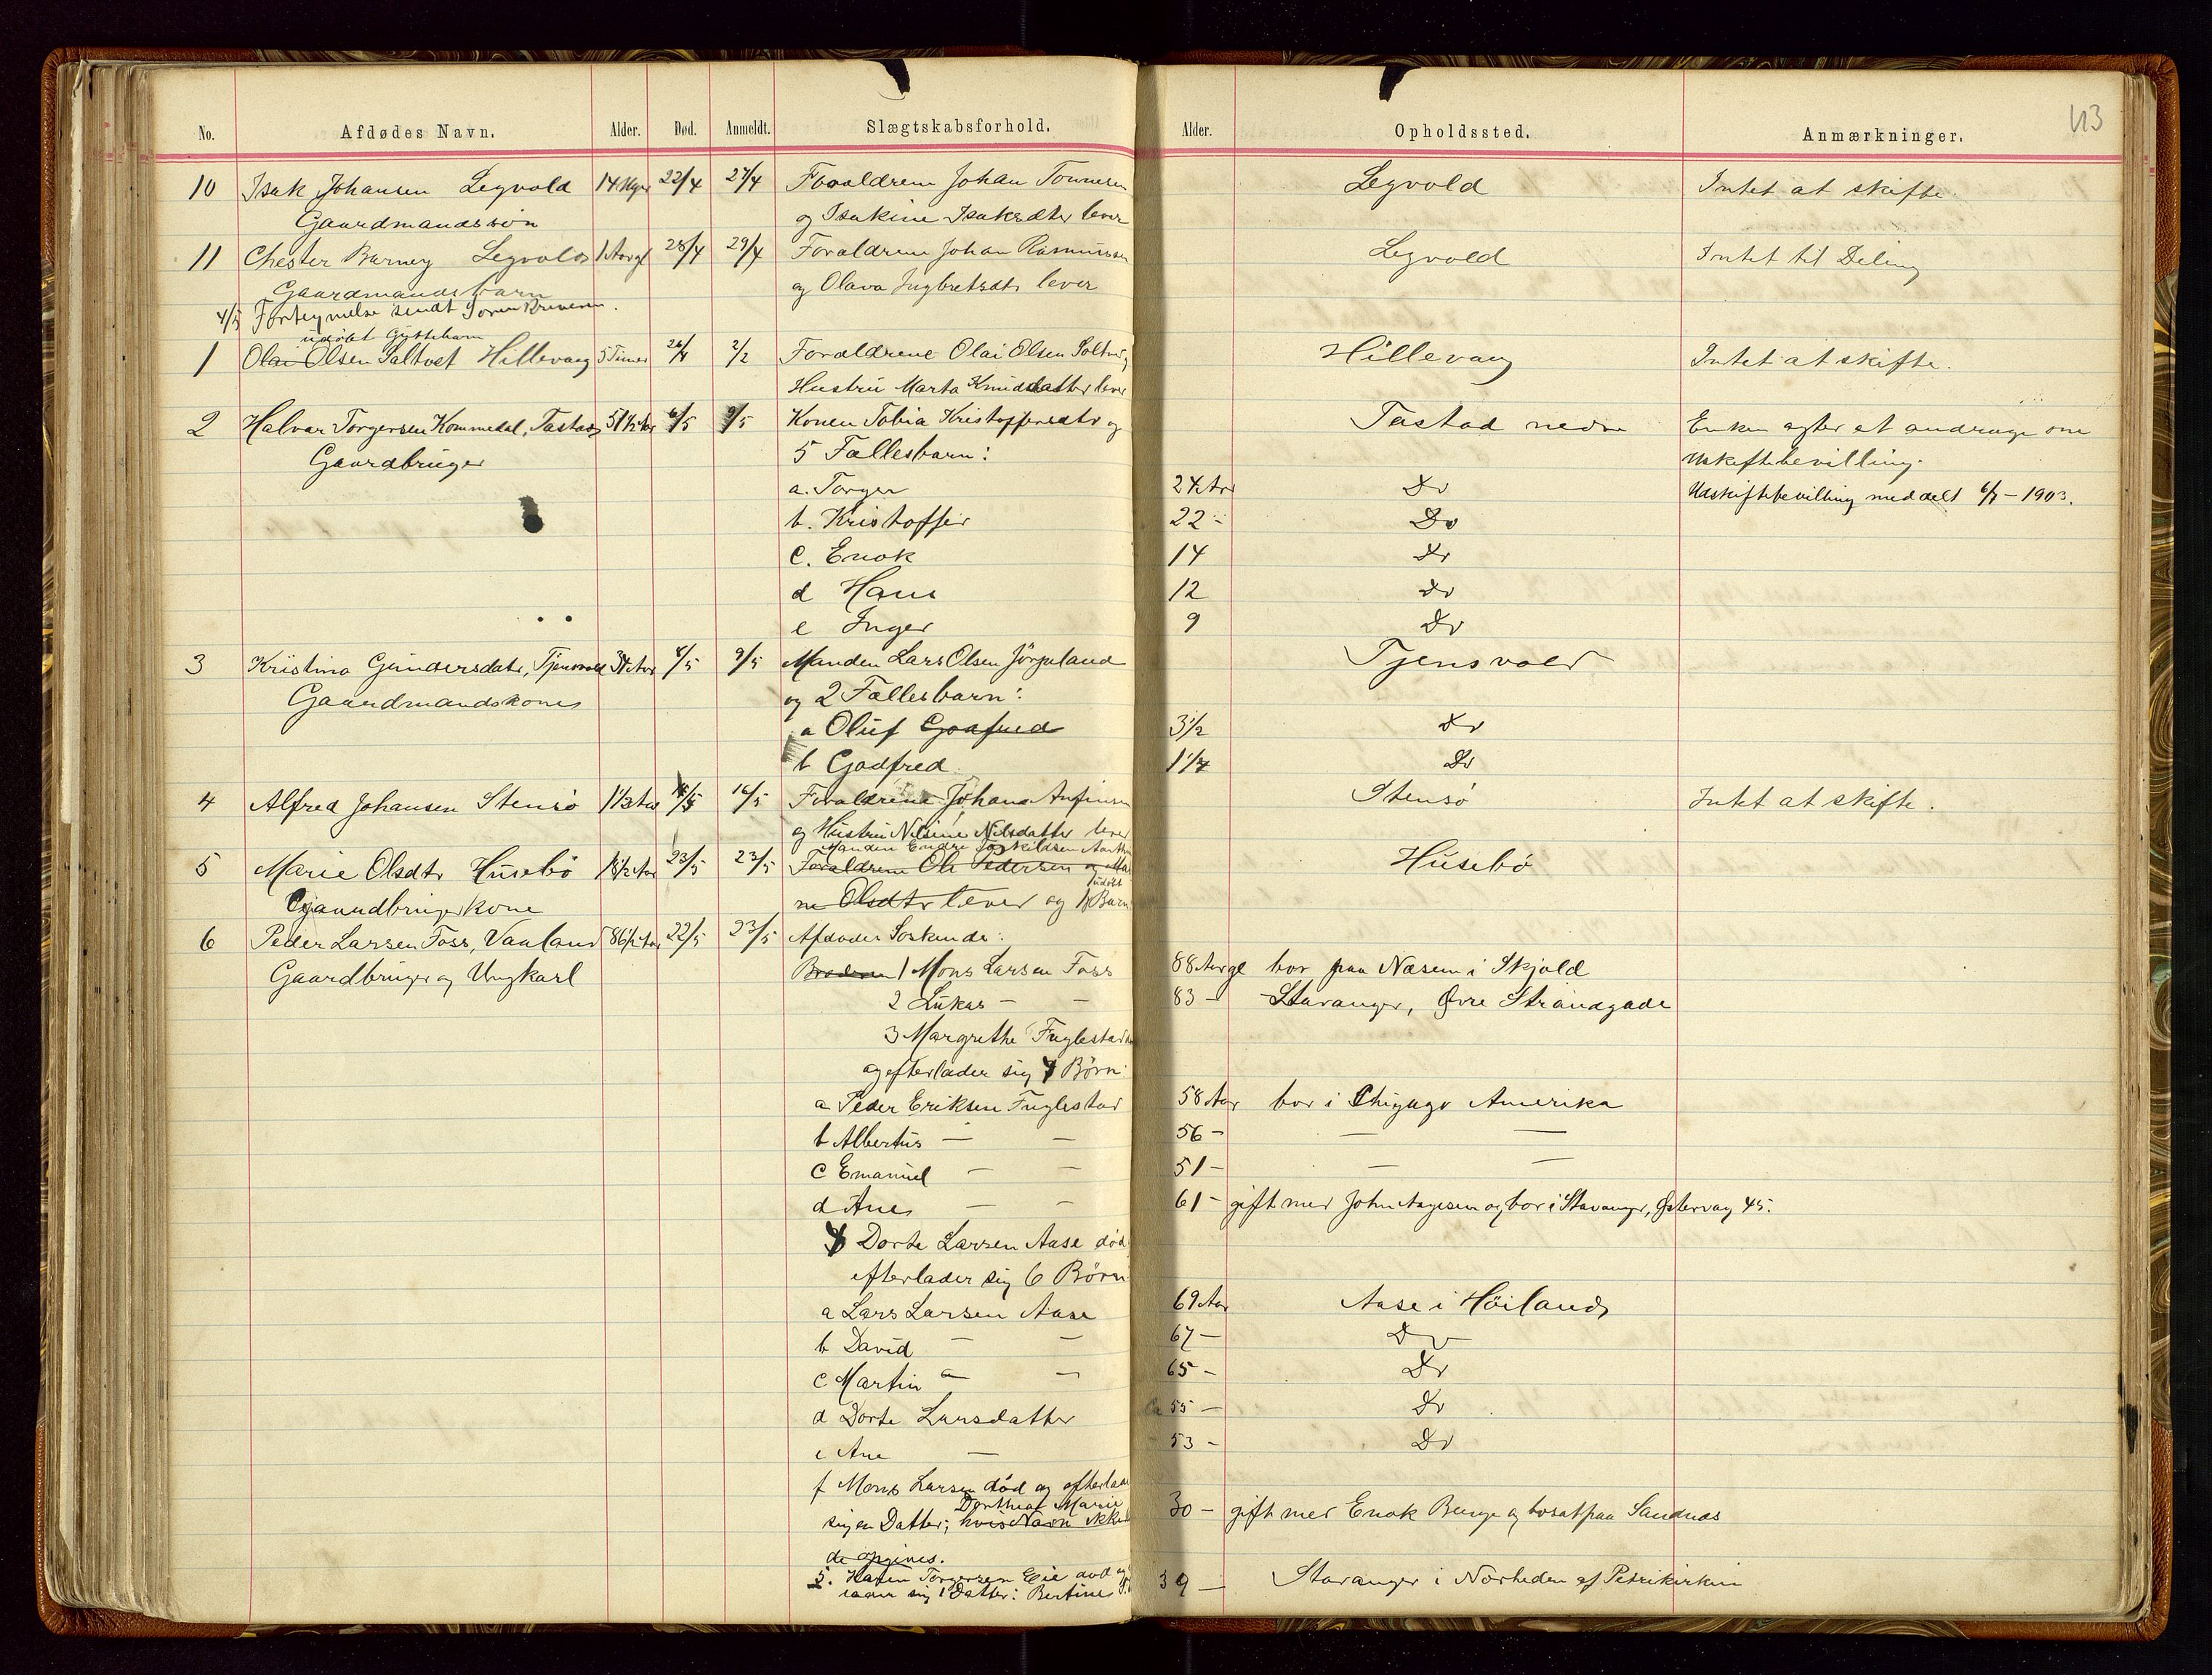 113
No. Afdødes Navn. Alder. Død. Anmeldt. Slægtskabsforhold. Alder. Opholdssted. Anmærkninger.
10 Isak Johansen Legvold 14 Uger 22/4 27/4 Forældrene Johan Tonnesen Legvold Intet at skifte.
Gaardmandssøn og Isakine Isaksdtr lever
11 Chester Barney Legvold 1 Aar gl 28/4 29/4 Forældrene Johan Rasmussen Legvold Intet til Deling
Gaardmandsbarn og Olava Ingbretsdtr lever
4/5 Fortegnelse sendt Sorenskriveren.
udøbt Gyttebarn
1 Olai Olsen Saltvet Hillevaag 5 Timer 26/4 2/2 Forældrene Olai Olsen Hillevaag Intet at skifte.
Hustru Marta Knudsdatter lever
2 Halvar Torgersen Kommedal, Tastad 51 1/2 Aar 6/5 9/5 Konen Tobia Kristoffersdtr og Tastad nedre Enken agter at andrage om
Gaardbruger 5 Fællesbarn: Uskiftebevilling.
a. Torger 24 Aar Do Udskiftebevilling meddelt 6/7 - 1903.
b. Kristoffer 22 - Do
c. Enok 14 Do
d Hans 12 Do
e Inger 9 Do
3 Kristina Gundersdatr, Tjensvold 34 Aar 8/5 9/5 Manden Lars Olsen Jørpeland Tjensvold
Gaardmandskone og 2 Fællesbarn:
a Oluf Goafred 3 1/2 Do
b Godfred 1 1/4 Do
4 Alfred Johansen Stensø 1 1/3 Aar 16/5 Forældrene Johan Anfinsen Stensø Intet at skifte.
og Hustru Nilsine Nilsdatter lever
Manden Endre Toskildsen
5 Marie Olsdtr Husebø 23/5 23/5 Forældrene Ole Pedersen og Ma Husebø
udøbt
Gaardbrugerkone ne Olsdtr lever og 1 Barn
6 Peder Larsen Foss, Vaaland 86 1/2 Aar 22/5 23/5 Afdødes Søskende:
Gaardbruger og Ungkarl Brødrene 1 Mons Larsen Foss 88 Aar gl bor paa Næsem i Skjold
2 Lukas - - 83 - Stavanger, Øvre Strandgade
3 Margrethe Fuglestad
og efterlader sig 4 Børn:
a Peder Eriksen Fuglestad 58 Aar bor i Chigago Amerika
b Albertus - - 56 - - -
c Emanuel - - 51 - - -
d Ane - - 61 - gift med John Aagesen og bor i Stavanger, Østervag 45.
4 Dorte Larsen Aase død
efterlader sig 6 Børn
a Lars Larsen Aase 69 Aar Aase i Høiland
b David - - 67 - Do
c Martin - - 65 - Do
d Dorte Larsdatter 55 - Do
e Ane - 53 - Do
f Mons Larsen død og efterlader
Dorthea Marie
sig en Datter; hvis Navn ikke 30 - gift med Enok Berge og bosat paa Sandnæs
de opgives.
5. Karen Torgersen Eie død og
lader sig 1 Datter: Bertine 39 - Stavanger i Nærheden af Petrikirken